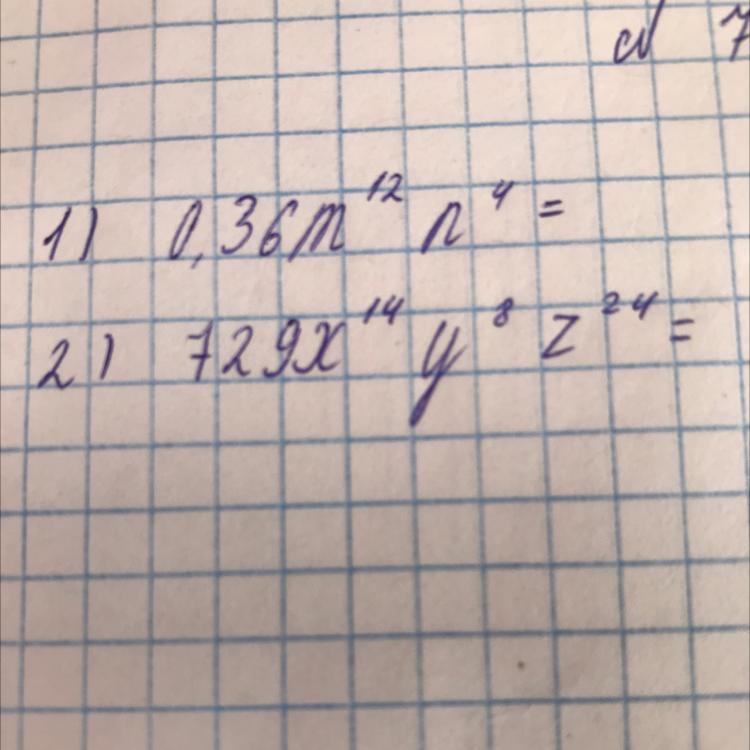 № 7
1) 0,36m¹² n⁴ =
2) 729x¹⁴ y⁸ z²⁴ =